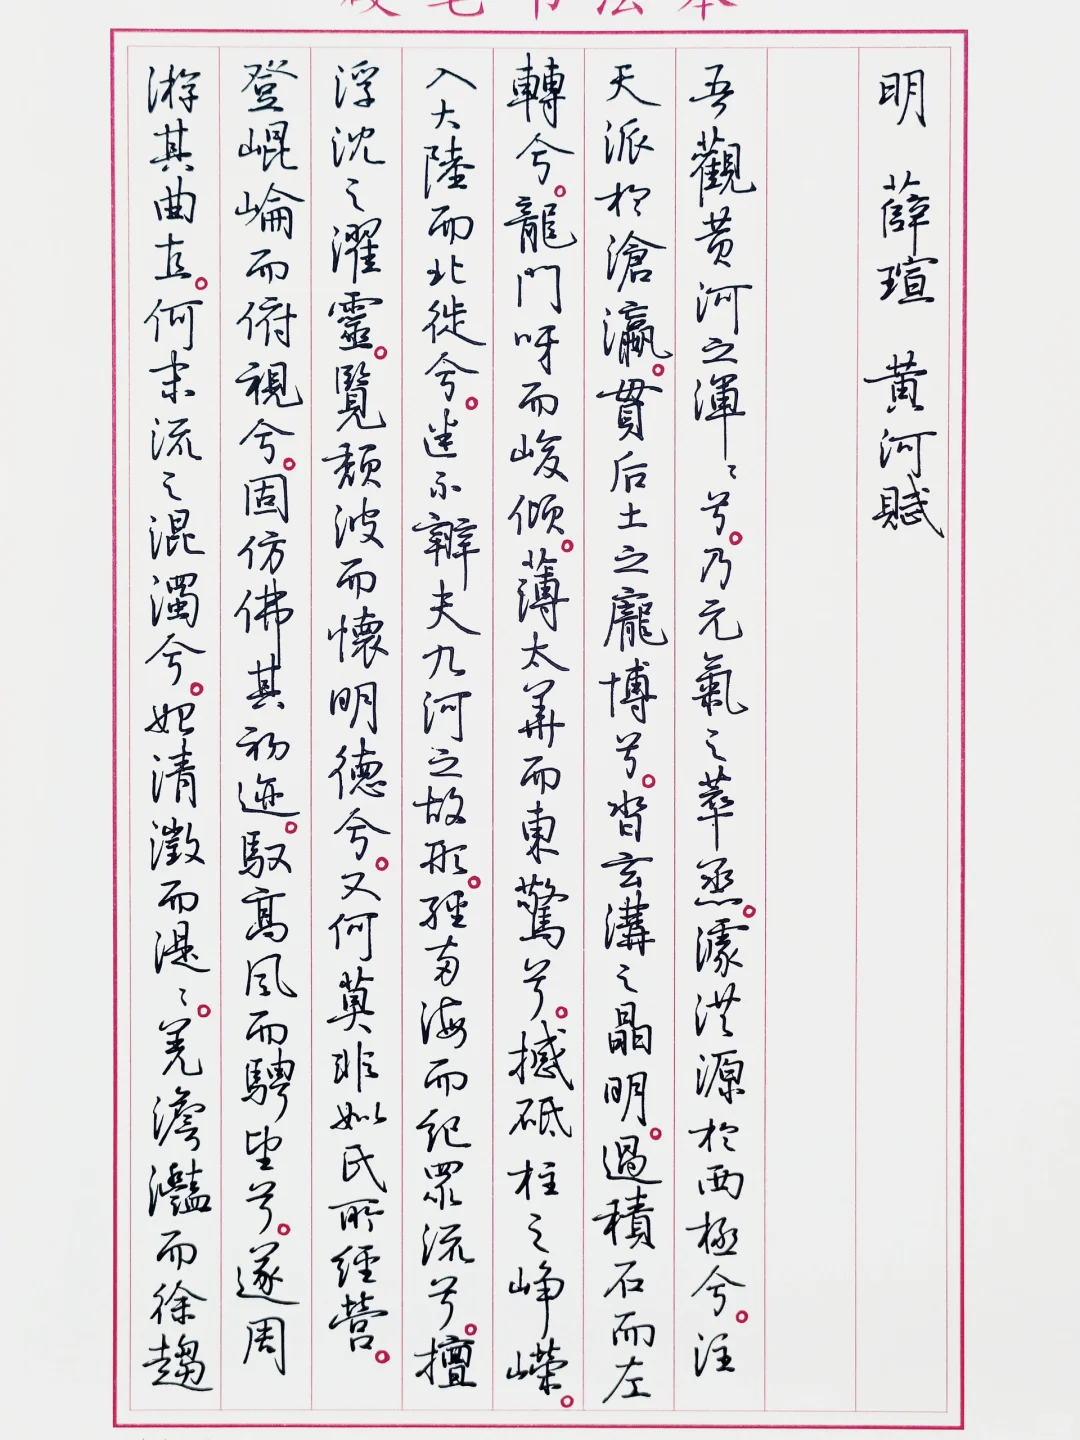 硬笔书法本
明 薛瑄 黄河賦
吾觀黄河之渾〻兮。乃元氣之萃烝。濬洪源於西極兮。注
天派於滄瀛。貫后土之龐博兮。沓玄溝之晶明。過積石而左
轉兮。龍門呀而峻傾。薄太華而東驚兮。撼砥柱之崢嶸。
入大陸而北徙兮。迷不辨夫九河之故形。經南海而纪眾流兮。擅
浮沈之濯靈。覧頽波而懷明德兮。又何莫非姒氏所經营。
登崐崘而俯視兮。固仿佛其初迹。馭髙風而騁望兮。遂周
游其曲直。何末流之混濁兮。始清澂而湜〻。羌澹灩而徐趨